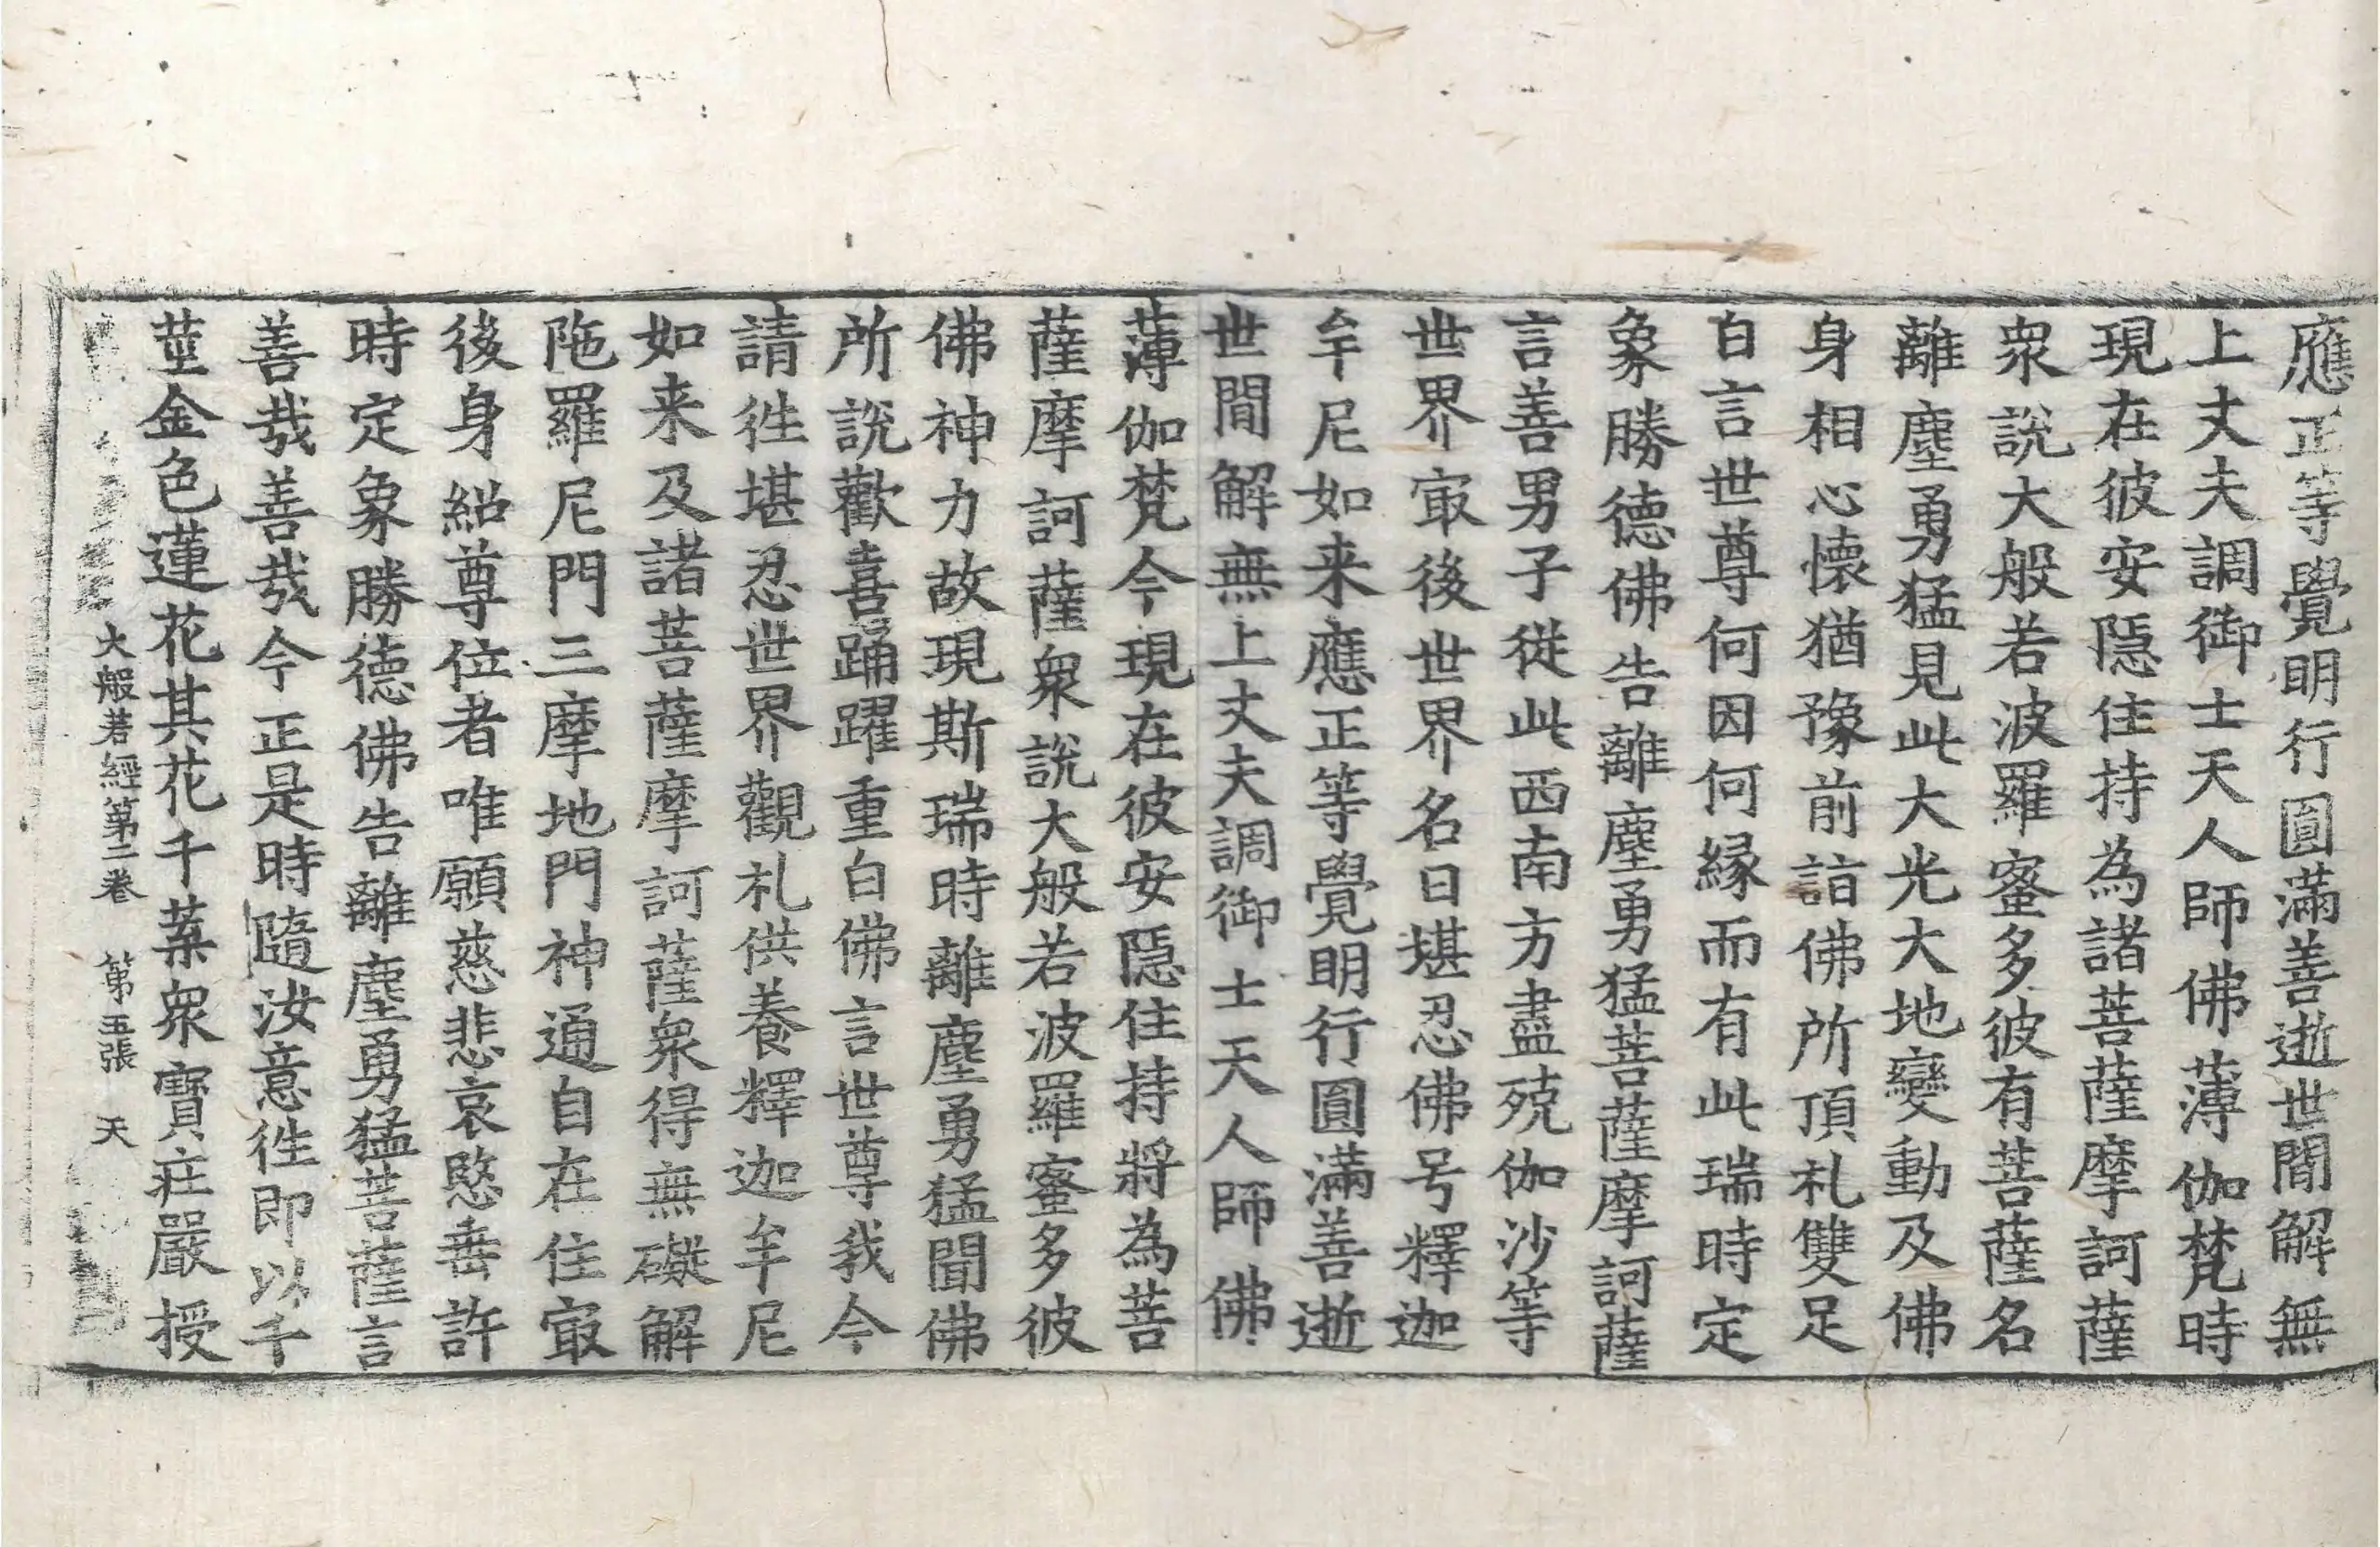 應正等覺明行圓滿善逝世間解無
上丈夫調御士天人師佛薄伽梵時
現在彼安隱住持為諸菩薩摩訶薩
衆說大般若波羅蜜多彼有菩薩名
離塵勇猛見此大光大地變動及佛
身相心懷猶豫前詣佛所頂礼雙足
白言世尊何因何縁而有此瑞時定
象勝德佛告離塵勇猛菩薩摩訶薩
言善男子從此西南方盡殑伽沙等
世界㝡後世界名曰堪忍佛号釋迦
牟尼如来應正等覺明行圓滿善逝
世間解無上丈夫調御士天人師佛
薄伽梵今現在彼安隱住持將為菩
薩摩訶薩衆說大般若波羅蜜多彼
佛神力故現斯瑞時離塵勇猛聞佛
所說歡喜踊躍重白佛言世尊我今
請徃堪忍世界觀礼供養釋迦牟尼
如来及諸菩薩摩訶薩衆得無礙解
陁羅尼門三摩地門神通自在住㝡
後身紹尊位者唯願慈悲哀愍垂許
時定象勝德佛告離塵勇猛菩薩言
善哉善哉今正是時隨汝意徃即以千
莖金色蓮花其花千葉衆寶莊嚴授
大般若經第二卷 第五張 天